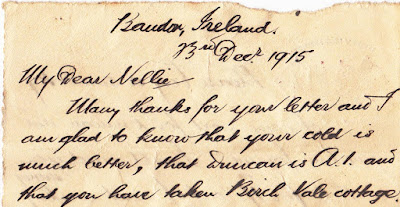 Bandon, Ireland.
23rd Decr 1915
My Dear Nellie
Many thanks for your letter and I
am glad to know that your cold is
much better, that Duncan is A.1. and
that you have taken Birch Vale cottage.